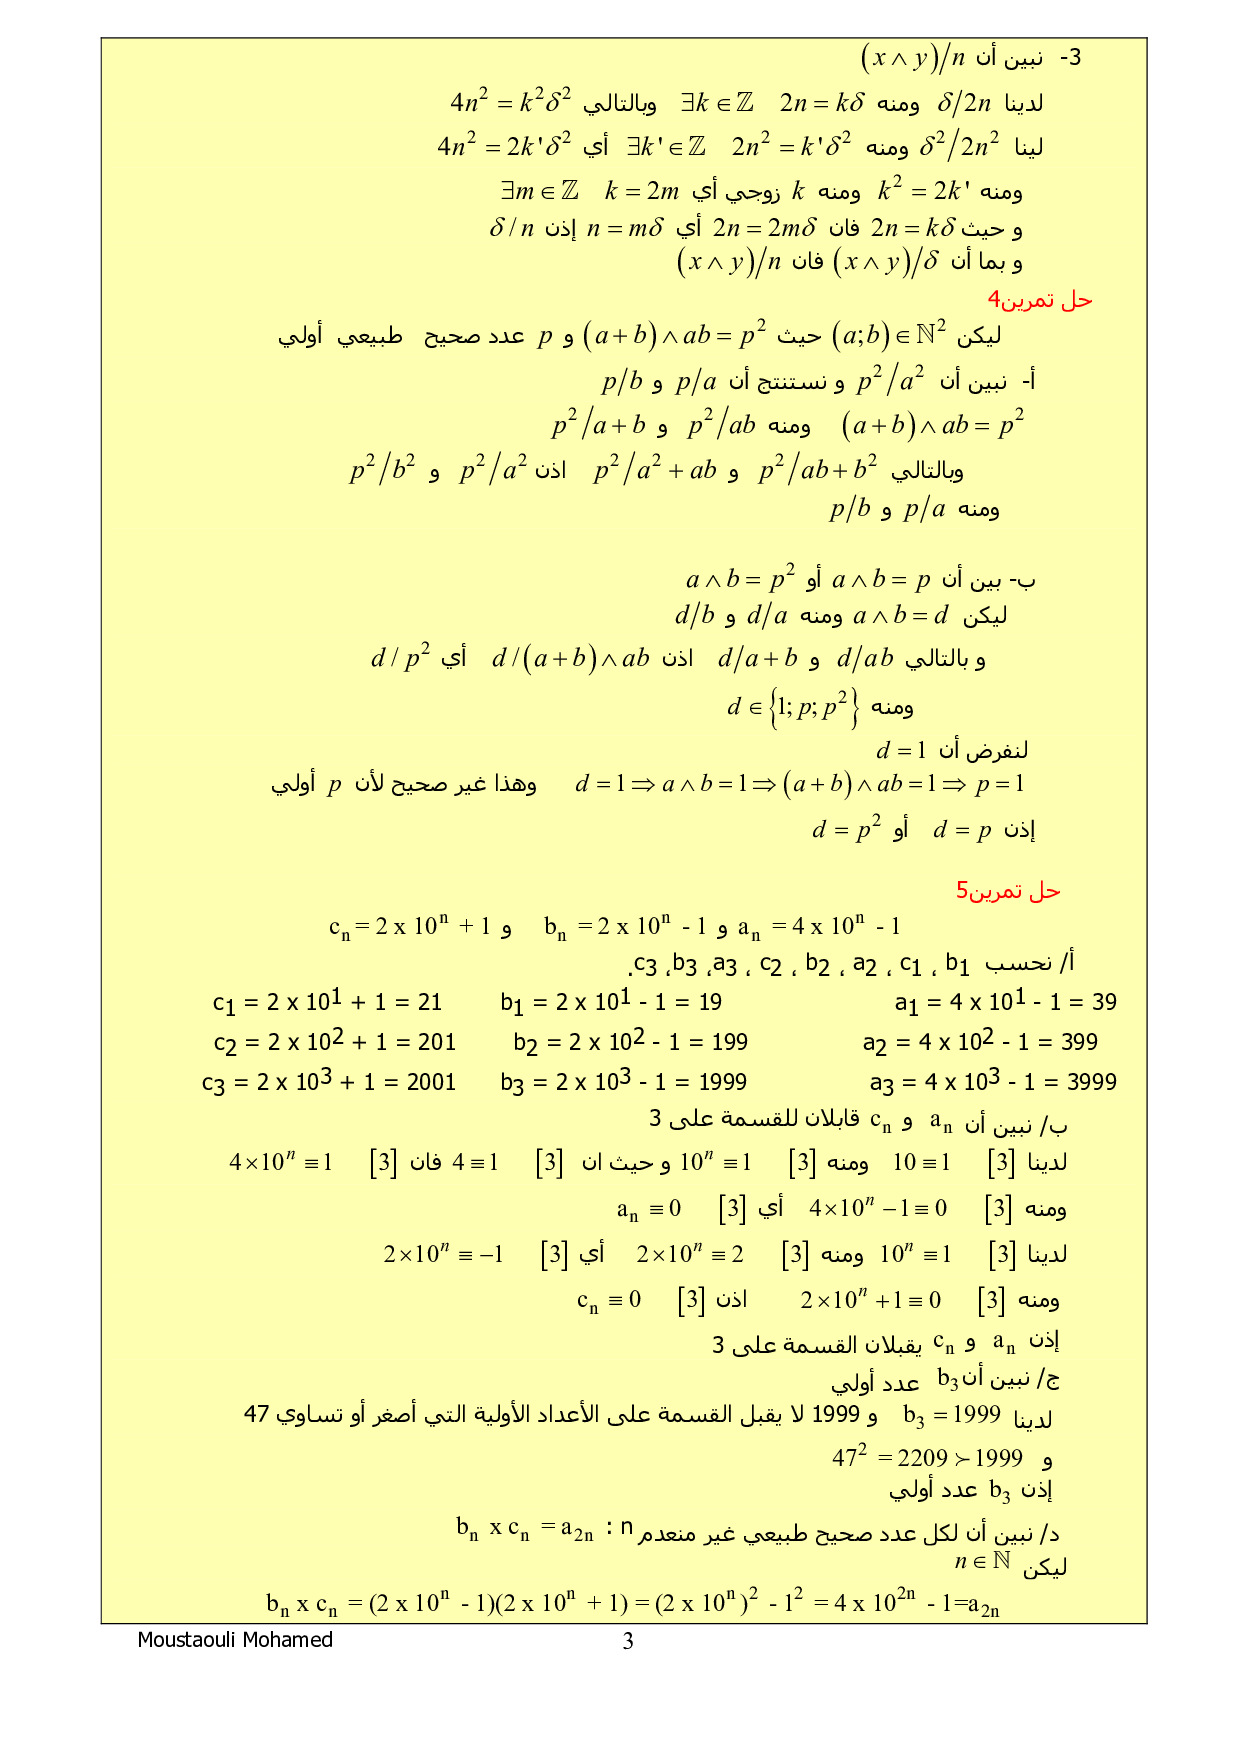 3- نبين أن (x ∧ y)/n
لدينا δ/2n ومنه ∃k ∈ ℤ 2n = kδ وبالتالي 4n² = k²δ²
لينا δ²/2n² ومنه ∃k' ∈ ℤ 2n² = k'δ² أي 4n² = 2k'δ²
ومنه k² = 2k' ومنه k زوجي أي ∃m ∈ ℤ k = 2m
و حيث 2n = kδ فان 2n = 2mδ أي n = mδ إذن δ / n
و بما أن (x ∧ y)/δ فان (x ∧ y)/n
حل تمرين4
ليكن (a;b) ∈ ℕ² حيث (a + b) ∧ ab = p² و p عدد صحيح طبيعي أولي
أ- نبين أن p²/a² و نستنتج أن p/a و p/b
(a + b) ∧ ab = p² ومنه p²/ab و p²/a + b
وبالتالي p²/ab + b² و p²/a² + ab اذن p²/a² و p²/b²
ومنه p/a و p/b
ب- بين أن a ∧ b = p أو a ∧ b = p²
ليكن a ∧ b = d ومنه d/a و d/b
و بالتالي d/ab و d/a + b اذن d /(a + b) ∧ ab أي d / p²
ومنه d ∈ {1; p; p²}
لنفرض أن d = 1
d = 1 ⇒ a ∧ b = 1 ⇒ (a + b) ∧ ab = 1 ⇒ p = 1 وهذا غير صحيح لأن p أولي
إذن d = p أو d = p²
حل تمرين5
aₙ = 4 x 10ⁿ - 1 و bₙ = 2 x 10ⁿ - 1 و cₙ = 2 x 10ⁿ + 1
أ/ نحسب b₁ ، c₁ ، a₂ ، b₂ ، c₂ ، a₃، b₃، c₃.
a₁ = 4 x 10¹ - 1 = 39 b₁ = 2 x 10¹ - 1 = 19 c₁ = 2 x 10¹ + 1 = 21
a₂ = 4 x 10² - 1 = 399 b₂ = 2 x 10² - 1 = 199 c₂ = 2 x 10² + 1 = 201
a₃ = 4 x 10³ - 1 = 3999 b₃ = 2 x 10³ - 1 = 1999 c₃ = 2 x 10³ + 1 = 2001
ب/ نبين أن aₙ و cₙ قابلان للقسمة على 3
لدينا 10 ≡ 1 [3] ومنه 10ⁿ ≡ 1 [3] و حيث ان 4 ≡ 1 [3] فان 4×10ⁿ ≡ 1 [3]
ومنه 4×10ⁿ − 1 ≡ 0 [3] أي aₙ ≡ 0 [3]
لدينا 10ⁿ ≡ 1 [3] ومنه 2×10ⁿ ≡ 2 [3] أي 2×10ⁿ ≡ −1 [3]
ومنه 2×10ⁿ + 1 ≡ 0 [3] اذن cₙ ≡ 0 [3]
إذن aₙ و cₙ يقبلان القسمة على 3
ج/ نبين أن b₃ عدد أولي
لدينا b₃ = 1999 و 1999 لا يقبل القسمة على الأعداد الأولية التي أصغر أو تساوي 47
و 47² = 2209 ≻ 1999
إذن b₃ عدد أولي
د/ نبين أن لكل عدد صحيح طبيعي غير منعدم n : bₙ x cₙ = a₂ₙ
ليكن n ∈ ℕ
bₙ x cₙ = (2 x 10ⁿ - 1)(2 x 10ⁿ + 1) = (2 x 10ⁿ)² - 1² = 4 x 10²ⁿ - 1=a₂ₙ
Moustaouli Mohamed 3